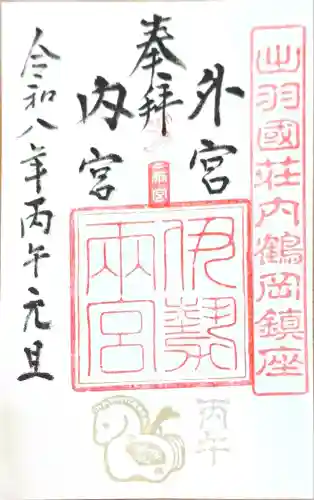 出羽國荘内鶴岡鎮座
奉拝
外宮
内宮
伊勢
両宮
令和八年丙午元旦
丙午